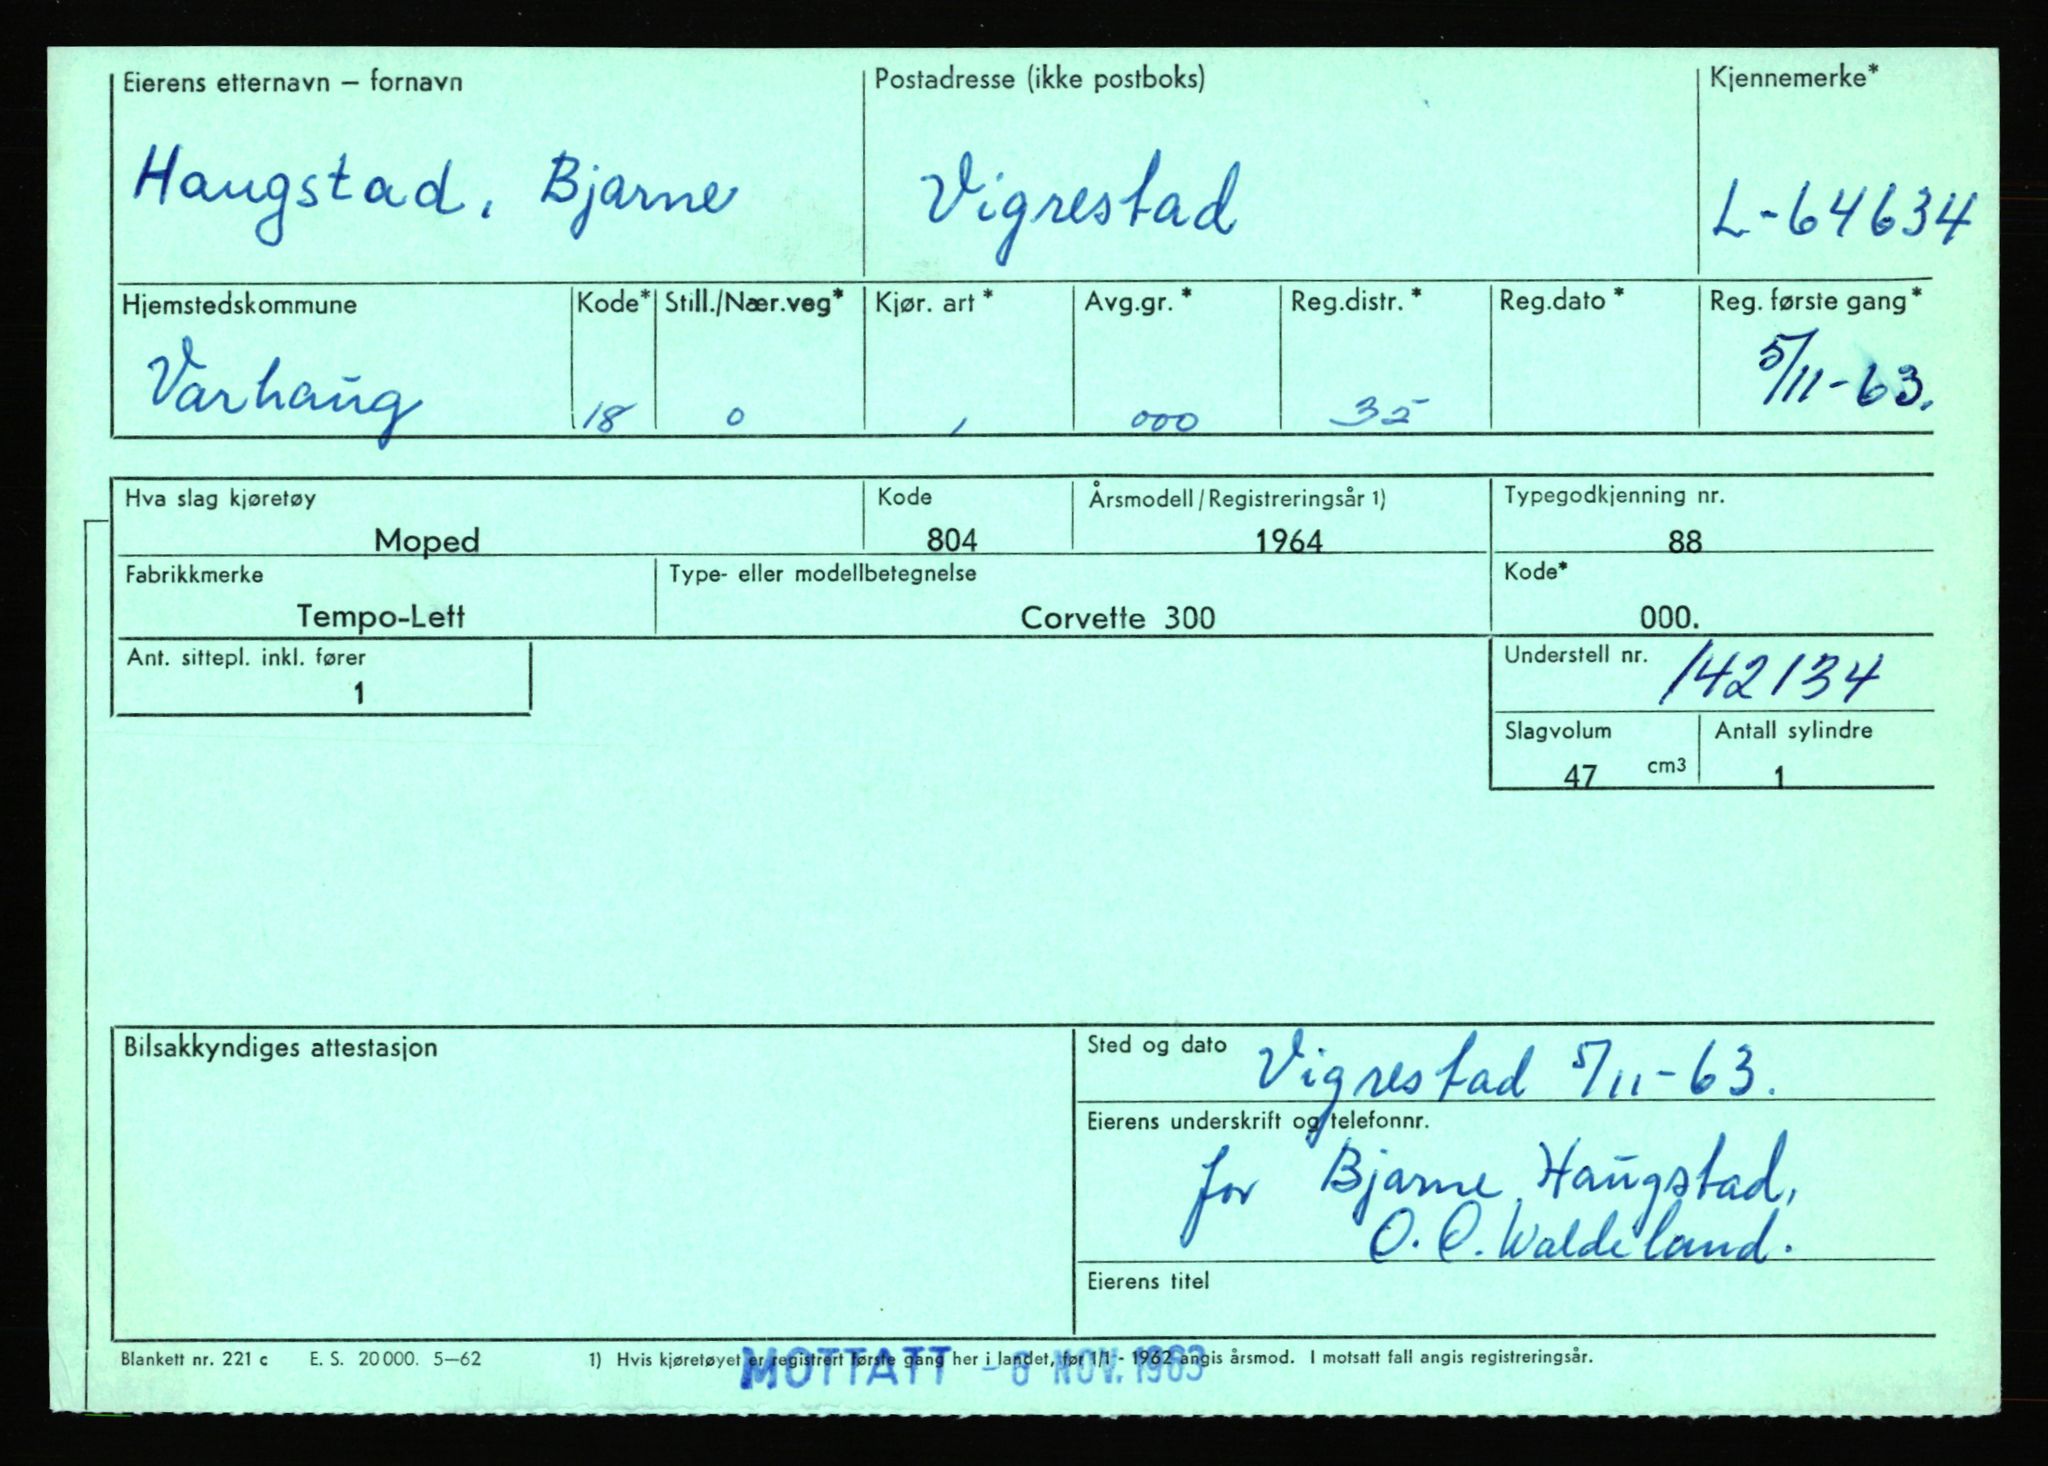 Eierens etternavn – fornavn Postadresse (ikke postboks) Kjennemerke*
Haugstad, Bjarne Vigrestad L-64634
Hjemstedskommune Kode* Still./Nær.veg* Kjør. art* Avg.gr.* Reg.distr.* Reg.dato* Reg. første gang*
Varhaug 18 0 1 000 35 5/11-63.
Hva slag kjøretøy Kode Årsmodell/Registreringsår 1) Typegodkjenning nr.
Moped 804 1964 88
Fabrikkmerke Type- eller modellbetegnelse Kode*
Tempo-Lett Corvette 300 000.
Ant. sittepl. inkl. fører Understell nr. 142134
1
Slagvolum Antall sylindre
47 cm3 1
Bilsakkyndiges attestasjon Sted og dato Vigrestad 5/11-63.
Eierens underskrift og telefonnr.
for Bjarne Haugstad,
O. O. Waldeland.
Eierens titel
Blankett nr. 221 c E. S. 20 000. 5–62 1) Hvis kjøretøyet er registrert første gang her i landet, før 1/1 - 1962 angis årsmod. I motsatt fall angis registreringsår.
MOTTATT - 6 NOV. 1963